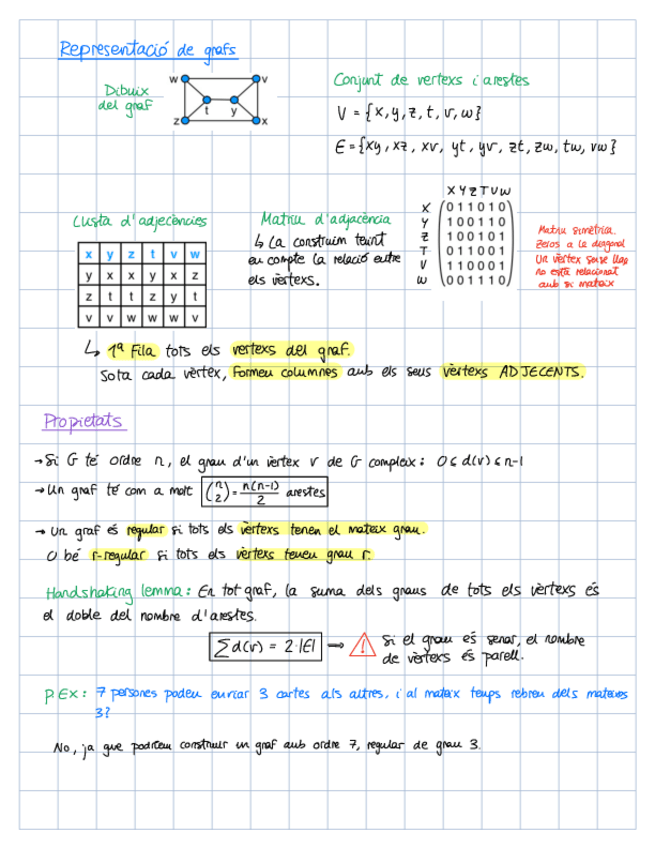 Representació de grafs
Dibuix
del graf
w v
t y
z x
Conjunt de vertexs i arestes
V = {x, y, z, t, v, w}
E = {xy, xz, xv, yt, yv, zt, zw, tw, vw}
Llista d'adjecències
x y z t v w
y x x y x z
z t t z y t
v v w w w v
Matriu d'adjacència
↳ La construim teint
eu compte la relació entre
els vèrtexs.
X Y Z T V W
X 0 1 1 0 1 0
Y 1 0 0 1 1 0
Z 1 0 0 1 0 1
T 0 1 1 0 0 1
V 1 1 0 0 0 1
W 0 0 1 1 1 0
Matriu simètrica.
Zeros a la diagonal
Un vèrtex sense llaç
no està relacionat
amb si mateix
↳ 1ª Fila tots els vertexs del graf.
Sota cada vèrtex, formeu columnes amb els seus vèrtexs ADJECENTS.
Propietats
→ Si G té ordre n, el grau d'un vèrtex v de G compleix: 0 ≤ d(v) ≤ n-1
→ Un graf té com a molt (n 2) = n(n-1)/2 arestes
→ Un graf és regular si tots els vèrtexs tenen el mateix grau.
O bé r-regular si tots els vèrtexs teneu grau r.
Handshaking lemma: En tot graf, la suma dels graus de tots els vèrtexs és
el doble del nombre d'arestes.
∑d(v) = 2·|E| → ! Si el grau és senar, el nombre
de vèrtexs és parell.
P.Ex: 7 persones podeu enviar 3 cartes als altres, i al mateix temps rebreu dels mateixos
3?
No, ja que podríem construir un graf amb ordre 7, regular de grau 3.